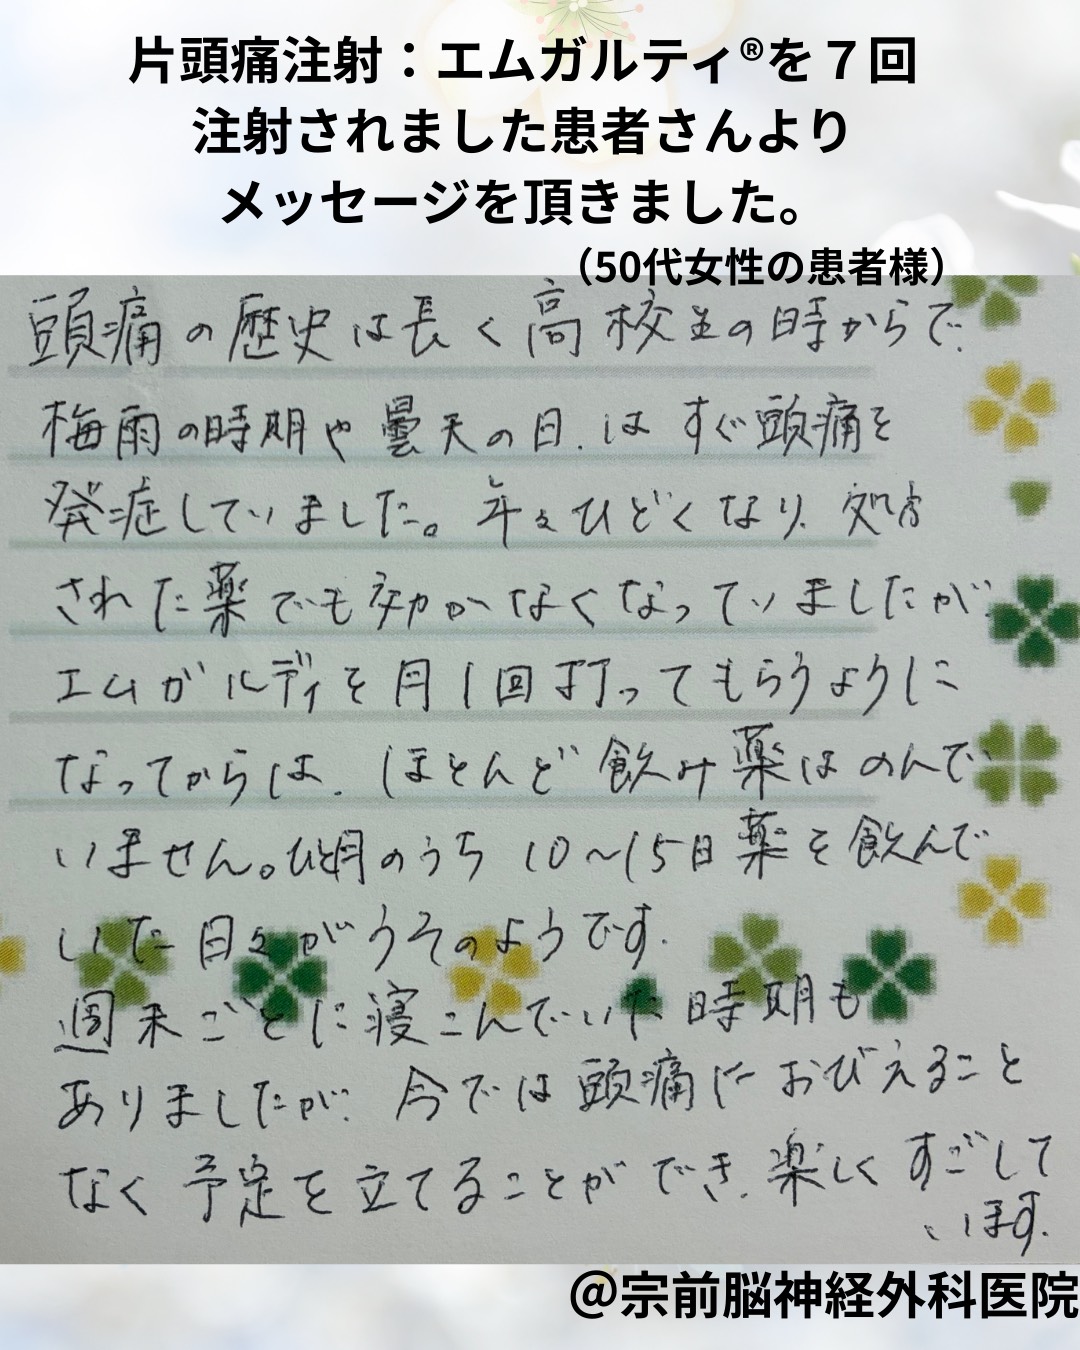 片頭痛注射：エムガルティ®を７回
注射されました患者さんより
メッセージを頂きました。
（50代女性の患者様）
頭痛の歴史は長く高校生の時からで、
梅雨の時期や曇天の日、はすぐ頭痛を
発症していました。年々ひどくなり、処方
された薬でも効かなくなっていましたが、
エムガルディを月1回打ってもらうように
なってからは、ほとんど飲み薬はのんで
いません。ひと月のうち10〜15日薬を飲んで
いた日々がうそのようです。
週末ごとに寝こんでいた時期も
ありましたが、今では頭痛におびえること
なく予定を立てることができ、楽しくすごして
います。
@宗前脳神経外科医院